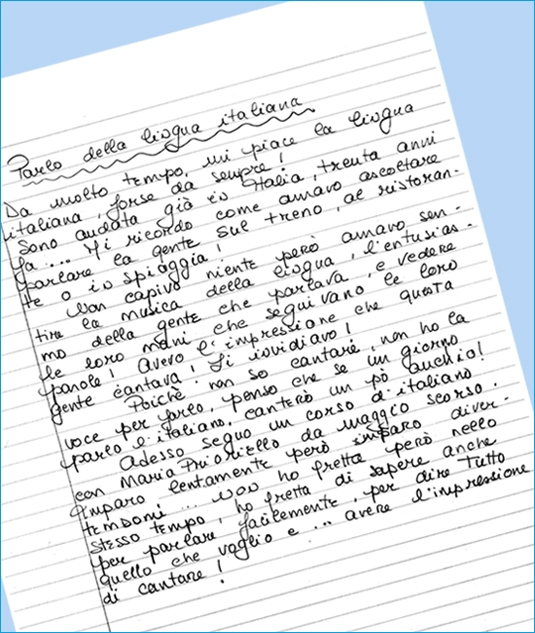 Parlo della lingua italiana
Da molto tempo, mi piace la lingua
italiana, forse da sempre!
Sono andata già in Italia, trenta anni
fa... Mi ricordo come amavo ascoltare
parlare la gente sul treno, al ristoran-
te o in spiaggia!
Non capivo niente però amavo sen-
tire la musica della lingua, l'entusias-
mo della gente che parlava, e vedere
le loro mani che seguivano le loro
parole! Avevo l'impressione che questa
gente cantava! Li invidiavo!
Poichè non so cantare, non ho la
voce per farlo, penso che se un giorno
parlo l'italiano, canterò un pò anchio!
Adesso seguo un corso d'italiano
con Maria Prioriello da maggio scorso.
Imparo lentamente però imparo diver-
tendomi... Non ho fretta però nello
stesso tempo, ho fretta di sapere anche
per parlare facilmente, per dire tutto
quello che voglio e... avere l'impressione
di cantare!